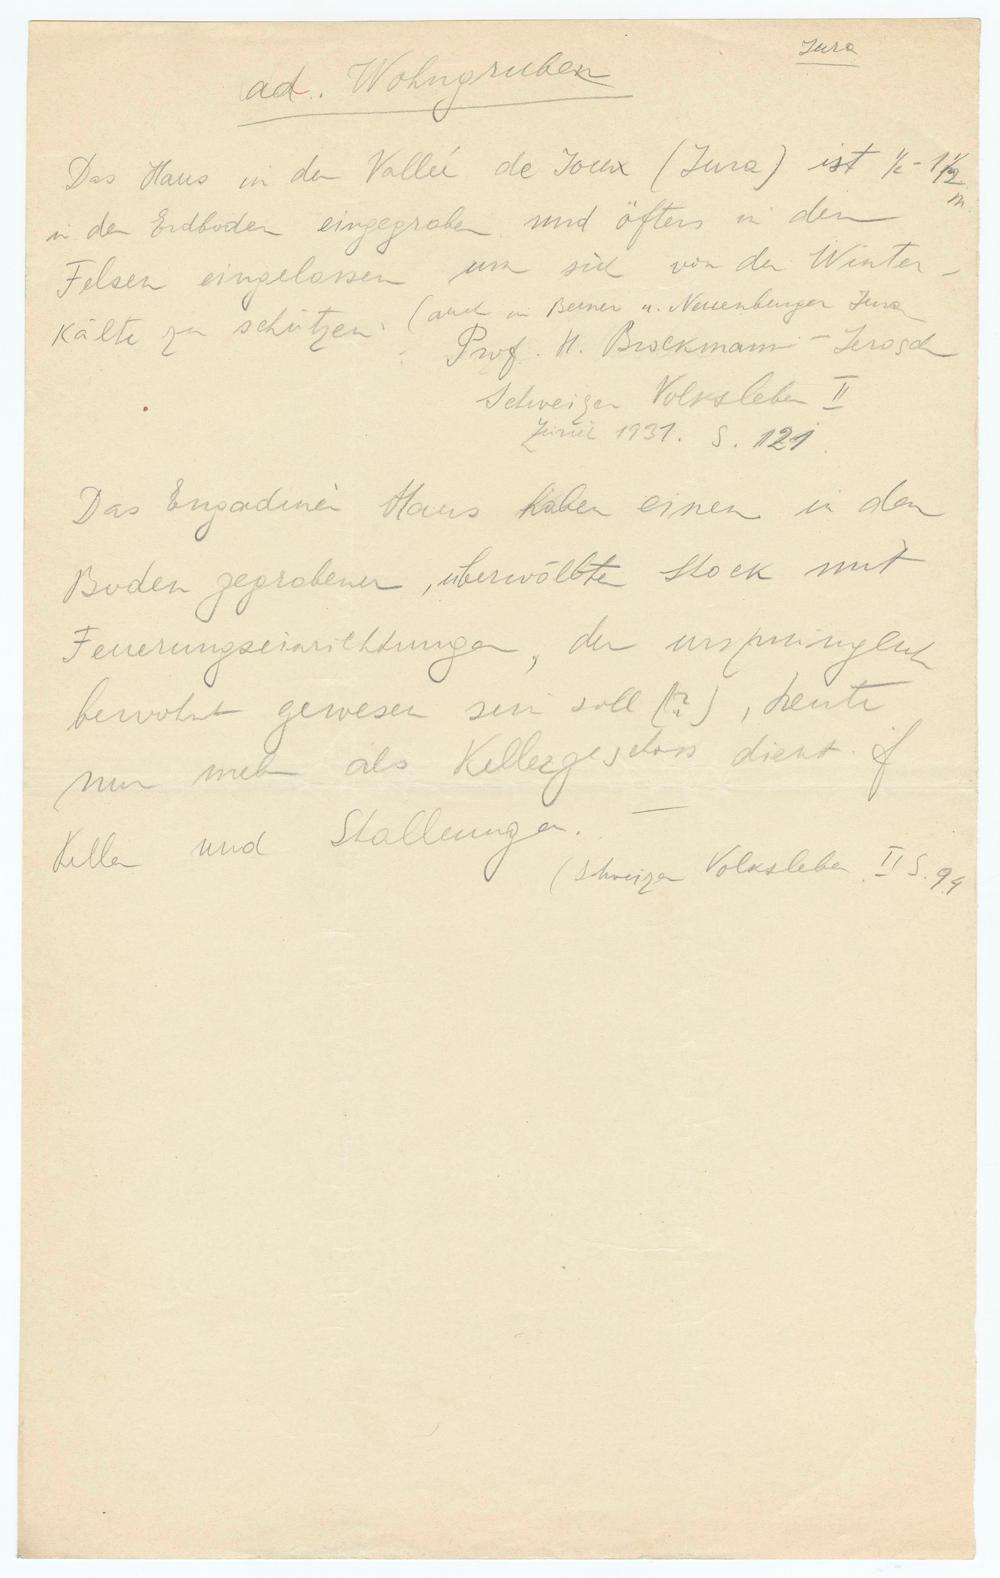 Jura
ad. Wohngruben
Das Haus in der Valleé de Joux (Jura) ist ½ - 1½ m
in den Erdboden eingegraben und öfters in den
Felsen eingelassen um sich von der Winter-
Kälte zu schützen. (auch in Berner u. Neuenburger Jura
Prof. H. Brockmann - Jerosch
Schweizer Volksleben II
Zürich 1931. S. 121.
Das Engadiner Haus haben einen in den
Boden gegrabenen, überwölbten Stock mit
Feuerungseinrichtungen, der ursprünglich
bewohnt gewesen sein soll (?), heute
nur mehr als Kellergeschoss dient. f
Keller und Stallungen. —
(Schweizer Volksleben II S. 94